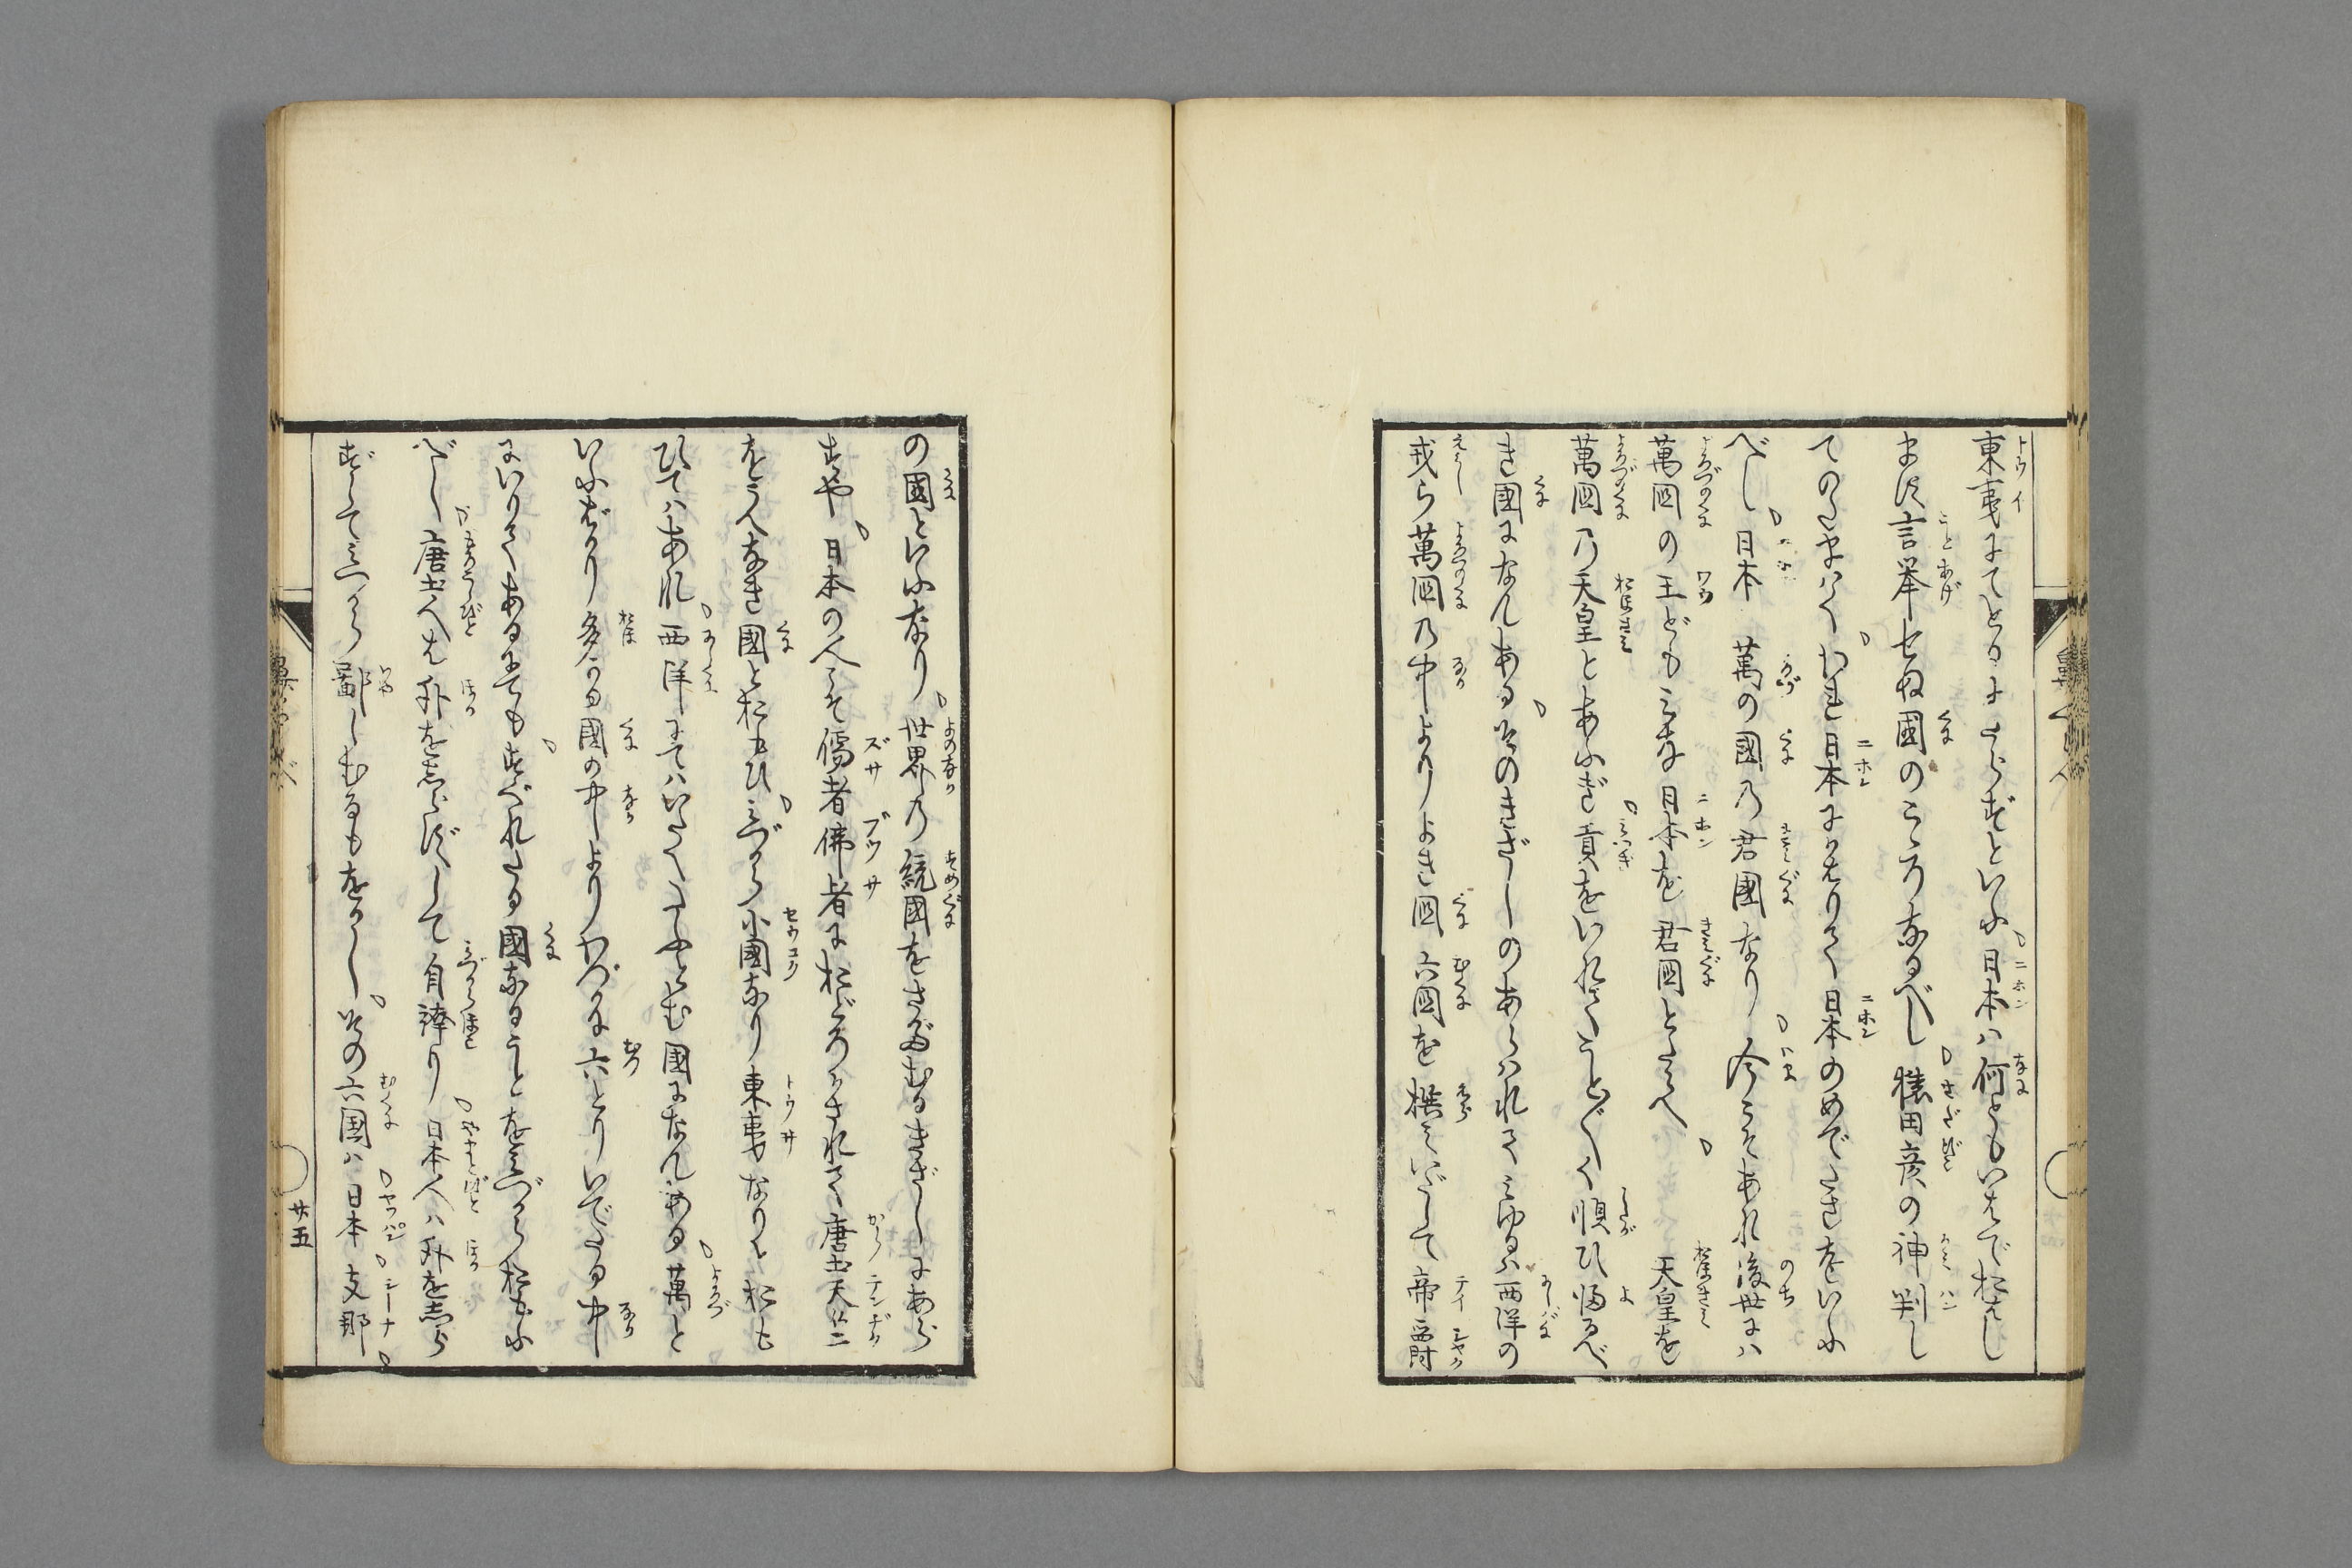 東夷にてとるにたらずといふ日本ハ何ともいはでおはし
ます言挙せぬ國のこゝろなるべし猿田彦の神判し
てのたまハくわれ日本にかはりて日本のめでたきをいふ
べし日本ハ萬の國乃君國なり今こそあれ後世にハ
萬国の王どもミな日本を君国とたゝへ天皇を
萬国乃天皇とあふぎ貢をいれてうとく順ひ帰るべ
き國になんあるそのきざしのあらハれてミゆるハ西洋の
戎ら萬国乃中よりよき国六国を撰ミいだして帝爵
の國といふなり世界乃統國をさだむるきざしにあら
ずや日本の人こそ儒者佛者におどろかされて唐土天竺
をうへなき國とおもひミづから小國なり東夷なりとおも
ひてハあれ西洋にてハいたくたふとむ國になんある萬と
いふばかり多かる國の中よりわづかに六とりいでたる中
にいりてあるにても すぐれたる國なることをミづからおもふ
べし唐土人は外をしらずして自誇り日本人ハ外をしら
ずしてミづから鄙しむるもをかしその六国ハ日本支那
廿五